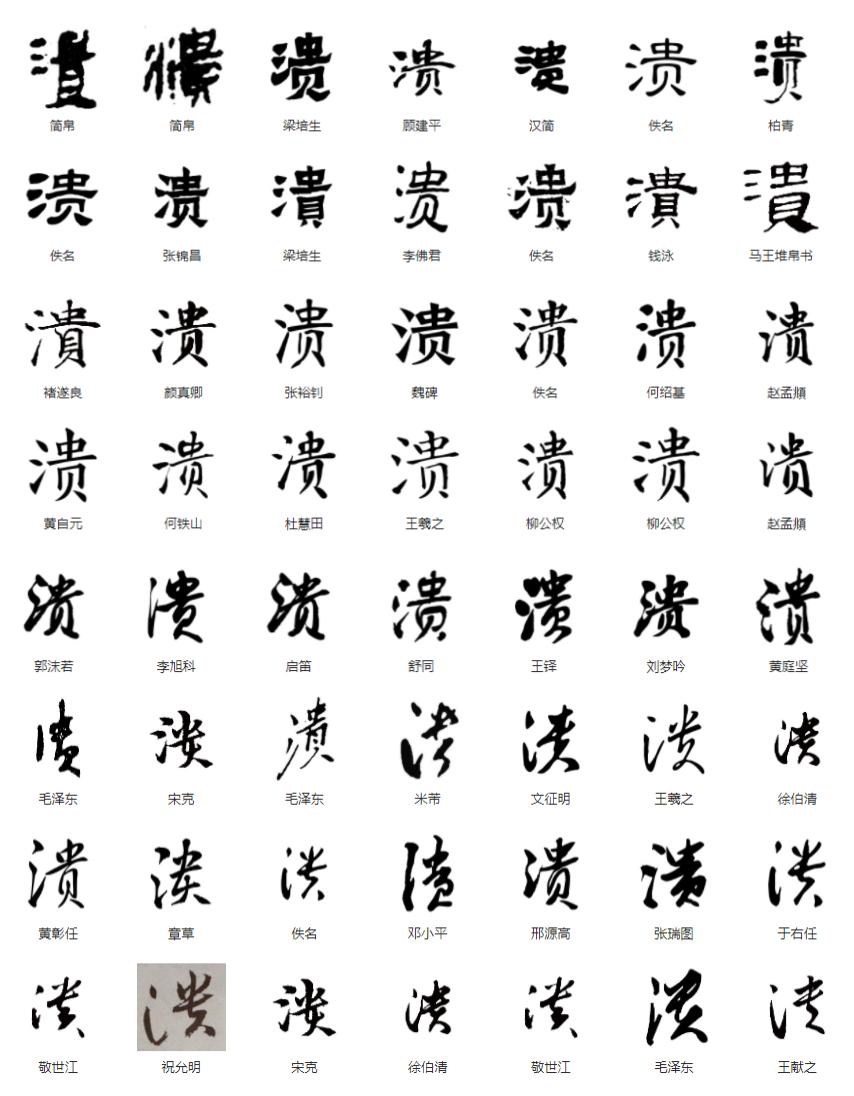 溃 溃 溃 溃 溃 溃 溃
简帛 简帛 梁培生 顾建平 汉简 佚名 柏青
溃 溃 潰 溃 溃 潰 潰
佚名 张锦昌 梁培生 李佛君 佚名 钱泳 马王堆帛书
潰 溃 溃 溃 溃 溃 溃
褚遂良 颜真卿 张裕钊 魏碑 佚名 何绍基 赵孟頫
溃 溃 溃 溃 溃 溃 溃
黄自元 何铁山 杜慧田 王羲之 柳公权 柳公权 赵孟頫
溃 溃 溃 溃 溃 溃 溃
郭沫若 李旭科 启笛 舒同 王铎 刘梦吟 黄庭坚
溃 溃 潰 溃 溃 溃 溃
毛泽东 宋克 毛泽东 米芾 文征明 王羲之 徐伯清
溃 溃 溃 溃 溃 溃 溃
黄彰任 章草 佚名 邓小平 邢源高 张瑞图 于右任
溃 溃 溃 溃 溃 溃 溃
敬世江 祝允明 宋克 徐伯清 敬世江 毛泽东 王献之